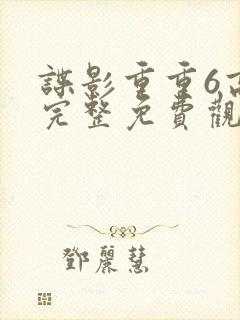 諜影重重6高
完整免費觀
鄧麗慧